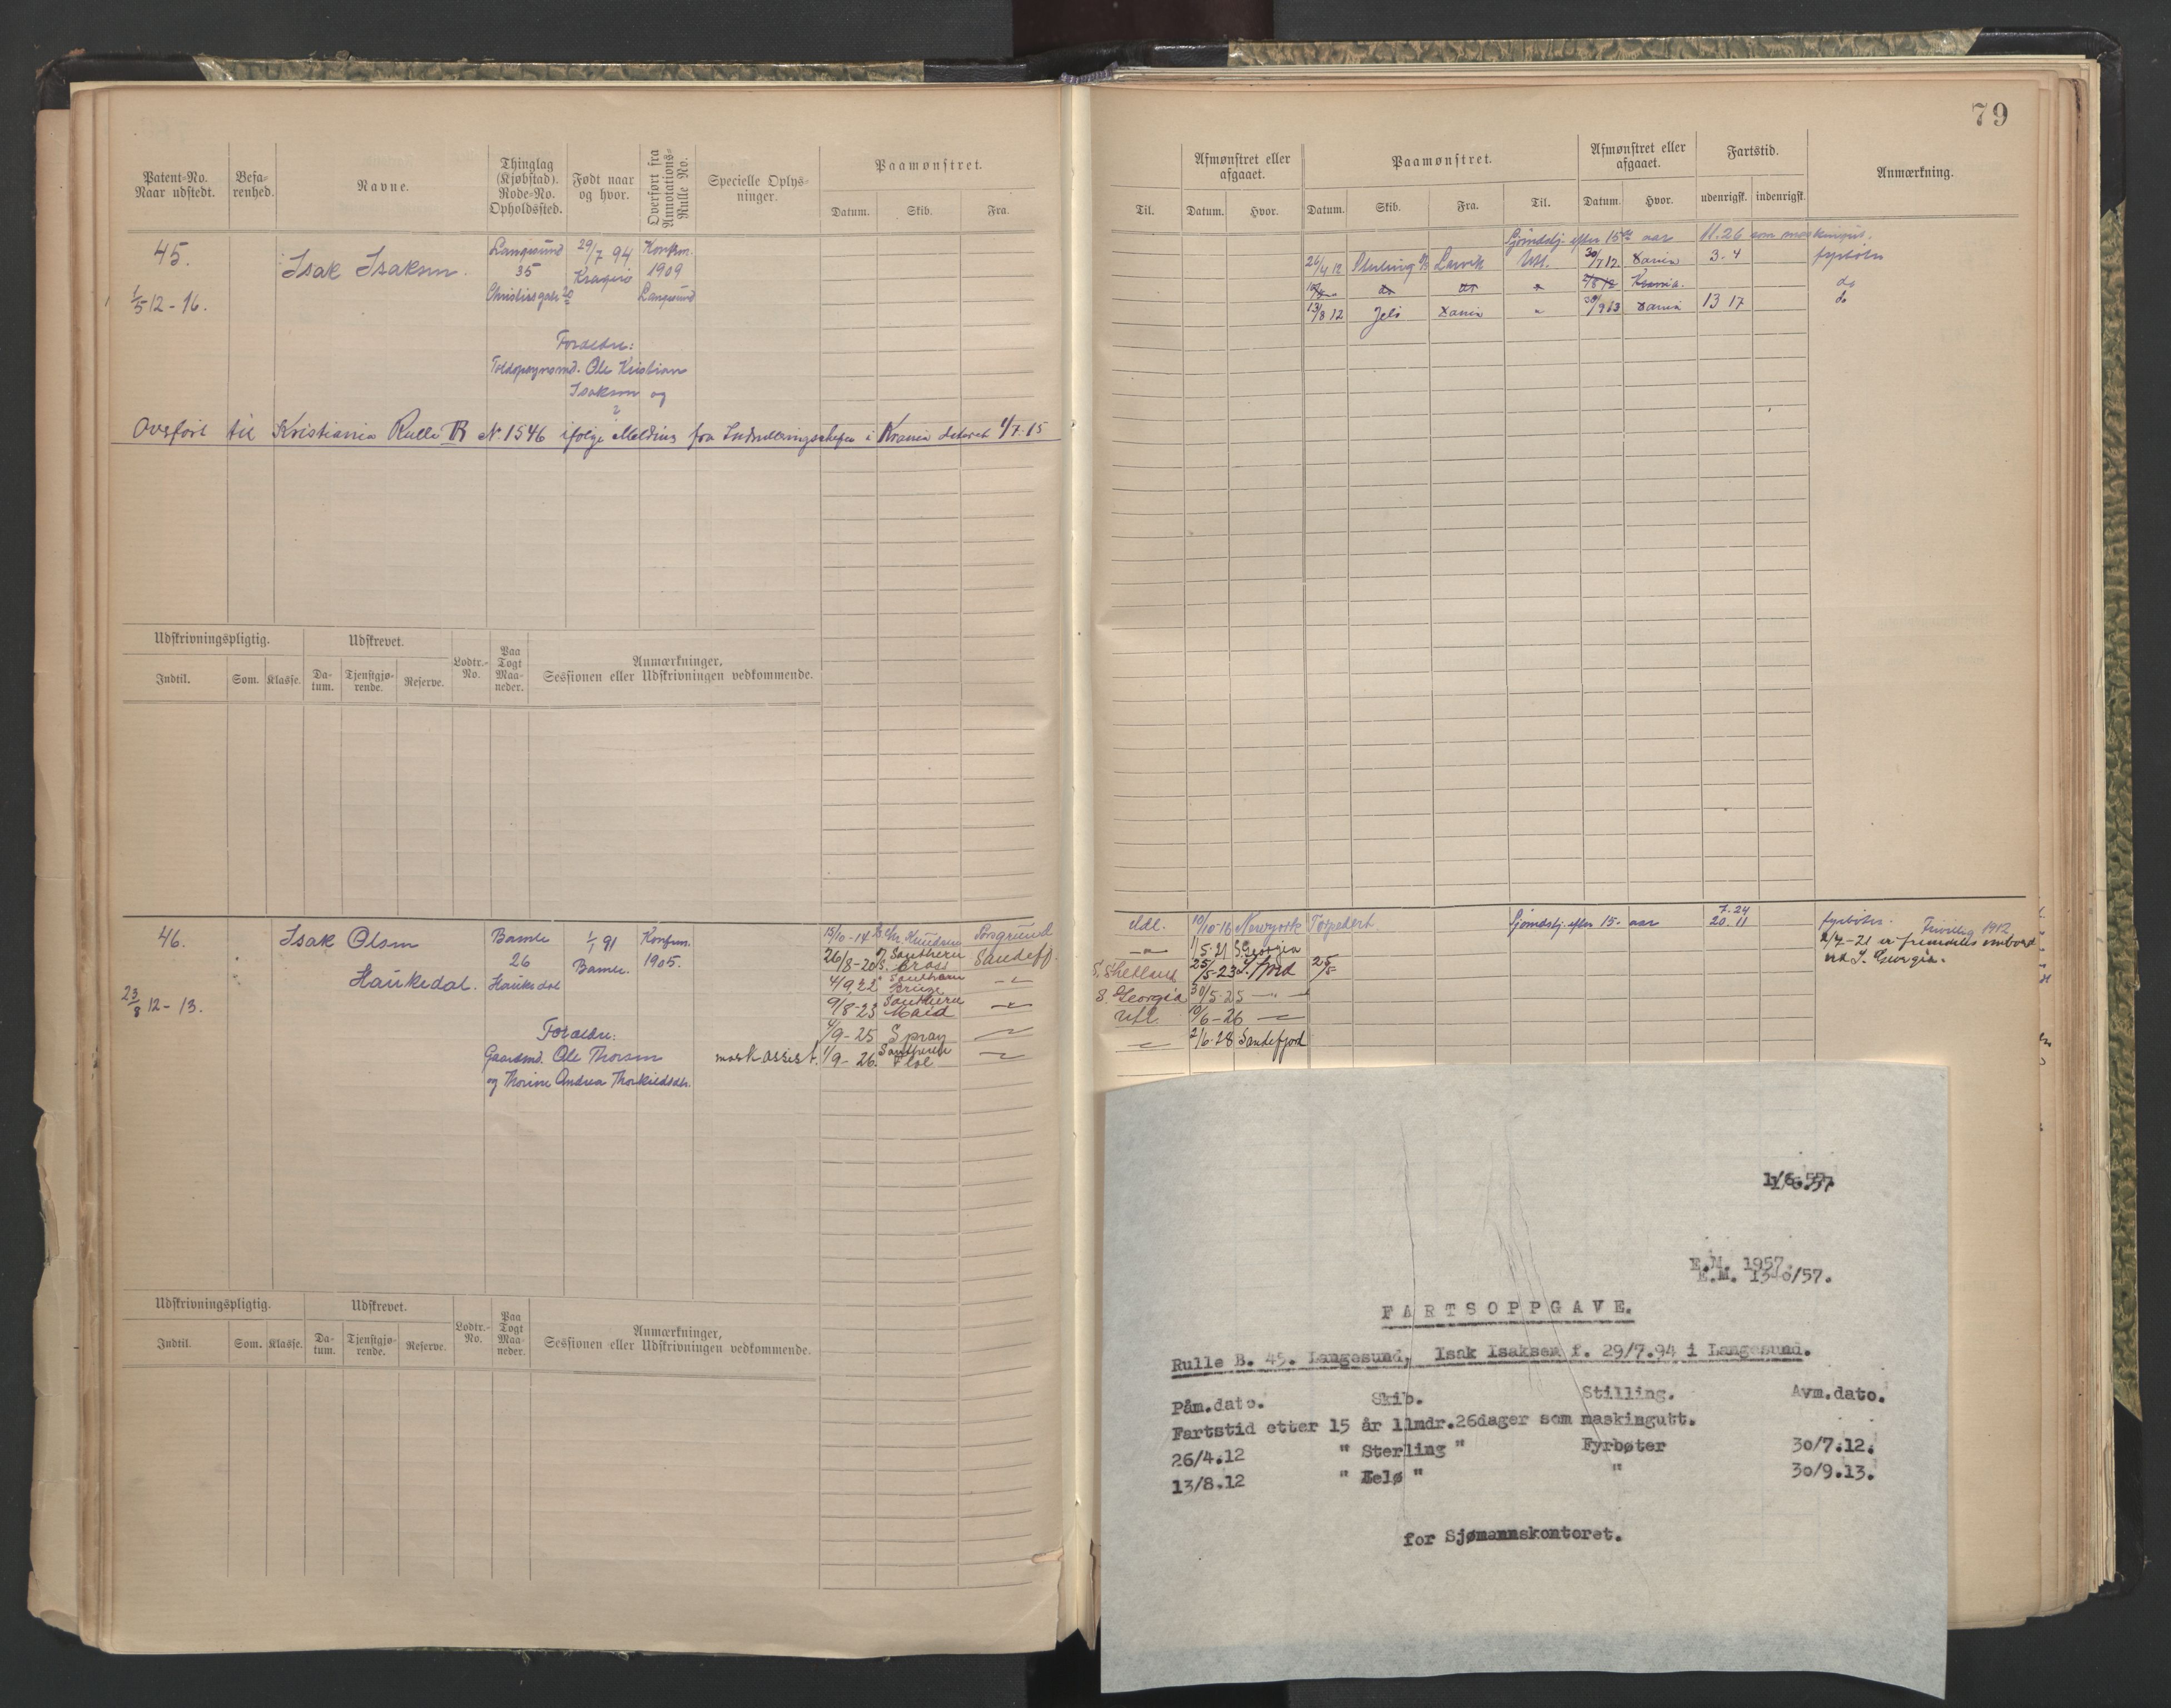 79
Patent-No. Naar udstedt.
Befarenhed.
Navne.
Thinglag (Kjøbstad). Rode-No. Opholdssted.
Født naar og hvor.
Overført fra Annotations-Rulle No.
Specielle Oplysninger.
Paamønstret.
Datum. Skib. Fra.
Til.
Afmønstret eller afgaaet.
Datum. Hvor.
Paamønstret.
Datum. Skib. Fra. Til.
Afmønstret eller afgaaet.
Datum. Hvor.
Fartstid.
udenrigsk. indenrigsk.
Anmærkning.
45.
1/5 12 - 16.
Isak Isaksen.
Langesund
35
29/7 94
Kragerø
Konfirm.
1909
Langesund
Forældre:
Ole Kristian
Isaksen og
?
Overført til Kristiania Rulle B No 1546 ifølge Melding fra Indrulleringschefen i Krania dateret 1/7-15
Sjømdslj. efter 15 aar 11.26 som maskingut.
26/4 12 Sterling Larvik Utl. 30/7 12 Xania 3. 4 fyrbøter
2/8 12 Krania. do
13/8 12 Jelø Xania " 30/9 13 Xania 13 17 do
Udskrivningspligtig.
Indtil. Som. Klasse.
Udskrevet.
Datum. Tjenstgjørende. Reserve.
Lodtr.-No.
Paa Togt Maaneder.
Anmærkninger, Sessionen eller Udskrivningen vedkommende.
46.
23/8 12 - 13.
Isak Olsen
Haukedal.
Bamle
26
Haukedal
1/1 91
Bamle.
Konfirm.
1905.
Forældre:
Gaardmd. Ole Thorsen
og Thorine Andrea Thorkildsdtr.
maskassist.
15/10-14 Chr. Knudsen Porsgrund
26/8-20 Southern Cross Sandeff.
4/9.22 Southern
9/8-23 Southern Maid
4/9-25 Spray
1/9-26. Southern
Utl. 10/10-16 Newyork Torpedert
Sjømdslj. efter 15. aar 7.24
20.11
fyrbøter. Frivillig 1912
1/5-21 S. Georgia
2/7-21 er fremdeles ombord
ved S. Georgia.
S. Shetland 25/5-23 S. fjord 25/5
S. Georgia 30/5-25
Utl. 10/6-26
2/6-28 Sandefjord
Udskrivningspligtig.
Indtil. Som. Klasse.
Udskrevet.
Datum. Tjenstgjørende. Reserve.
Lodtr.-No.
Paa Togt Maaneder.
Anmærkninger, Sessionen eller Udskrivningen vedkommende.
1/6.57.
E.M. 1957.
FARTSOPPGAVE.
Rulle B. 45. Langesund, Isak Isaksen f. 29/7.94 i Langesund.
Påm.dato. Skib. Stilling. Avm.dato.
Fartstid etter 15 år 11mdr.26dager som maskingutt.
26/4.12 " Sterling " Fyrbøter 30/7.12.
13/8.12 " Jelø " " 30/9.13.
for Sjømannskontoret.